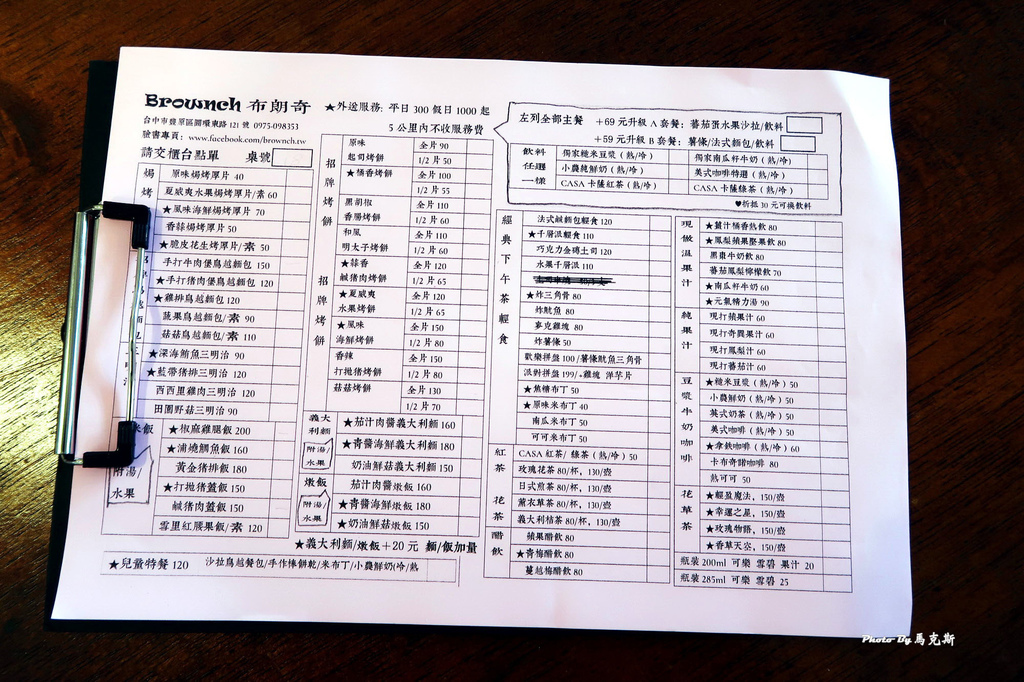 Brownch 布朗奇
★外送服務: 平日 300 假日 1000 起
5 公里內不收服務費
台中市豐原區圓環東路 121 號 0975-098353
臉書專頁: www.facebook.com/brownch.tw
請交櫃台點單 桌號
左列全部主餐 +69 元升級 A 套餐: 蕃茄蛋水果沙拉/飲料
+59 元升級 B 套餐: 薯條/法式麵包/飲料
飲料任選一樣
獨家糙米豆漿 (熱/冷) 獨家南瓜籽牛奶 (熱/冷)
小農純鮮奶 (熱/冷) 美式咖啡特選 (熱/冷)
CASA 卡薩紅茶 (熱/冷) CASA 卡薩綠茶 (熱/冷)
♥折抵 30 元可換飲料
焗烤
原味焗烤厚片 40
夏威夷水果焗烤厚片/素 60
★風味海鮮焗烤厚片 70
香蒜焗烤厚片 50
★脆皮花生烤厚片/素 50
手打牛肉堡鳥越麵包 150
★手打猪肉堡鳥越麵包 120
★雞排鳥越麵包 120
蔬果鳥越麵包/素 90
菇菇鳥越麵包/素 110
★深海鮪魚三明治 90
★藍帶猪排三明治 120
西西里雞肉三明治 120
田園野菇三明治 90
米飯
附湯/水果
★椒麻雞腿飯 200
★浦燒鯛魚飯 160
黃金猪排飯 180
★打拋猪蓋飯 150
鹹猪肉蓋飯 150
雪里紅腰果飯/素 120
招牌烤餅
招牌烤餅
原味 全片 90
起司烤餅 1/2 片 50
★橘香烤餅 全片 100
1/2 片 55
黑胡椒 全片 110
香腸烤餅 1/2 片 60
和風 全片 110
明太子烤餅 1/2 片 60
★蒜香 全片 120
鹹猪肉烤餅 1/2 片 65
★夏威夷 全片 120
水果烤餅 1/2 片 65
★風味 全片 150
海鮮烤餅 1/2 片 80
香辣 全片 150
打拋猪烤餅 1/2 片 80
菇菇烤餅 全片 130
1/2 片 70
義大利麵
附湯/水果
★茄汁肉醬義大利麵 160
★青醬海鮮義大利麵 180
奶油鮮菇義大利麵 150
燉飯
附湯/水果
茄汁肉醬燉飯 160
★青醬海鮮燉飯 180
★奶油鮮菇燉飯 150
★義大利麵/燉飯+20 元 麵/飯加量
★兒童特餐 120 沙拉鳥越餐包/手作棒餅乾/米布丁/小農鮮奶(冷/熱
經典下午茶輕食
法式鹹麵包輕食 120
★千層派輕食 110
巧克力金磚土司 120
水果千層派 110
★炸三角骨 80
炸魷魚 80
麥克雞塊 80
炸薯條 50
歡樂拼盤 100/薯條魷魚三角骨
派對拼盤 199/+雞塊 洋芋片
★焦糖布丁 50
★原味米布丁 40
南瓜米布丁 50
可可米布丁 50
紅茶
CASA 紅茶/ 綠茶 (熱/冷) 50
花茶
玫瑰花茶 80/杯, 130/壺
日式煎茶 80/杯, 130/壺
薰衣草茶 80/杯, 130/壺
義大利桔茶 80/杯, 130/壺
醋飲
蘋果醋飲 80
★青梅醋飲 80
蔓越梅醋飲 80
現做溫果汁
★薑汁橘香熱飲 80
★鳳梨蘋果堅果飲 80
黑棗牛奶飲 80
蕃茄鳳梨檸檬飲 70
★南瓜籽牛奶 60
★元氣精力湯 90
純果汁
現打蘋果汁 60
現打奇異果汁 60
現打鳳梨汁 60
現打蕃茄汁 60
豆漿牛奶咖啡
★糙米豆漿 (熱/冷) 50
小農鮮奶 (熱/冷) 50
英式奶茶 (熱/冷) 50
美式咖啡 (熱/冷) 50
★拿鐵咖啡 (熱/冷) 60
卡布奇諾咖啡 80
熱可可 50
花草茶
★輕盈魔法, 150/壺
★幸運之星, 150/壺
★玫瑰物語, 150/壺
★香草天空, 150/壺
瓶裝 200ml 可樂 雪碧 果汁 20
瓶裝 285ml 可樂 雪碧 25
Photo By 馬克斯